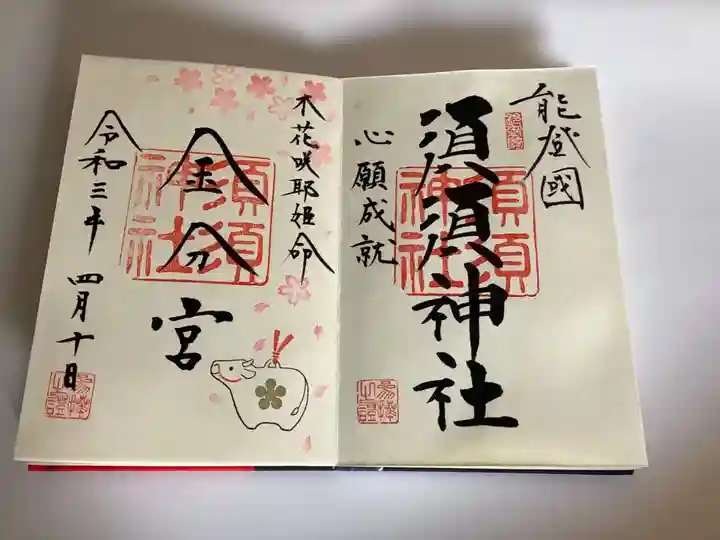 能登國
須須神社
心願成就
須須神社
木花咲耶姫命
金分宮
須須神社
令和三年 四月十日